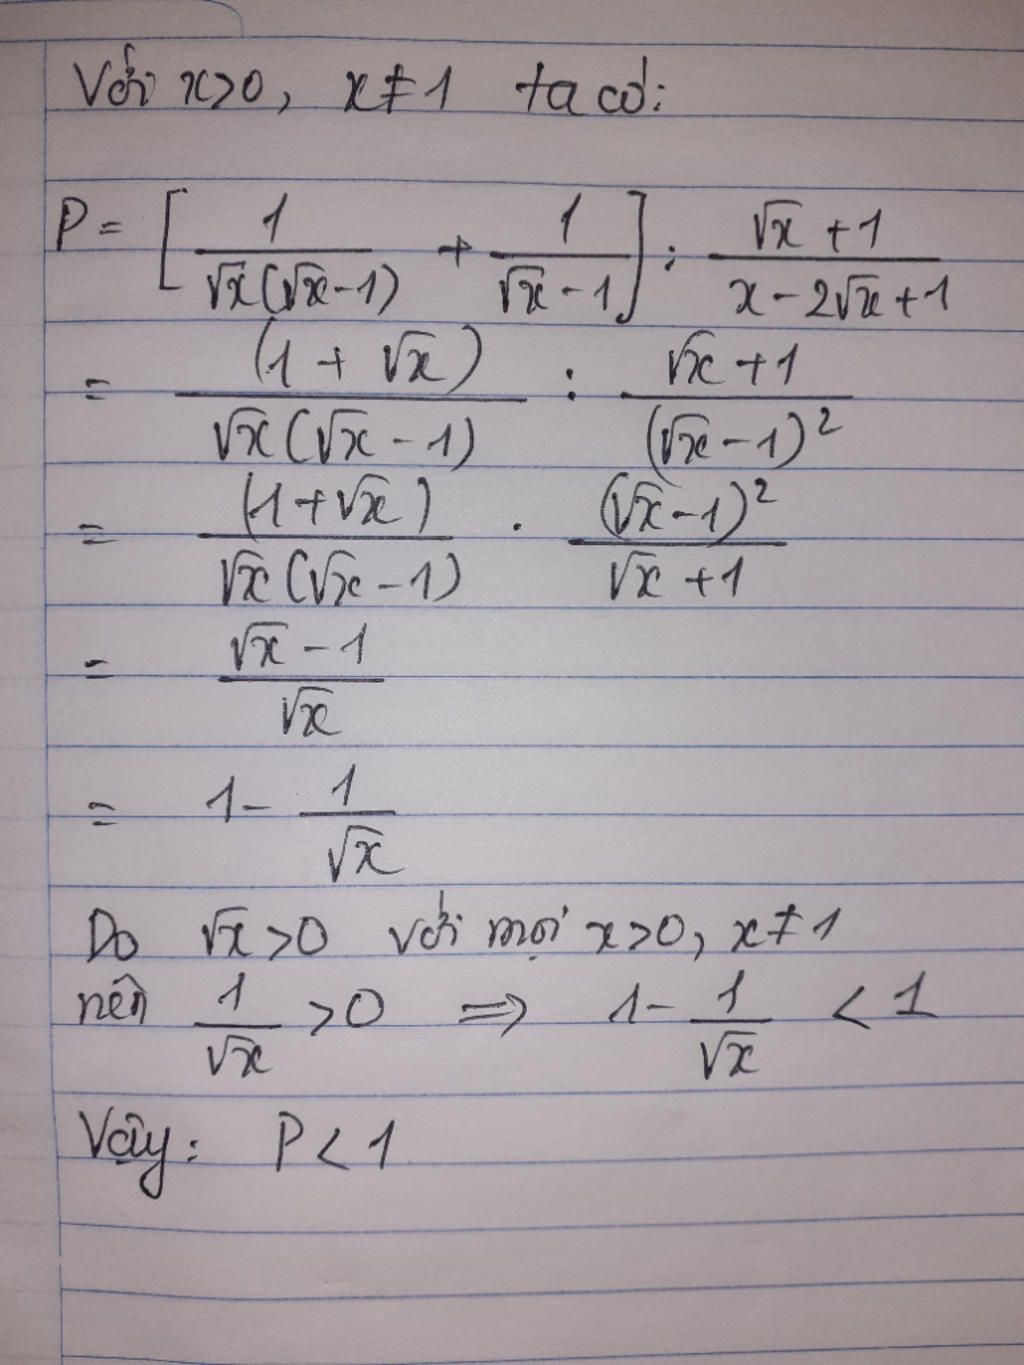 Với x>0, x≠1 ta có:
P = [1/(√x(√x-1)) + 1/(√x-1)] : (√x+1)/(x-2√x+1)
= (1+√x)/(√x(√x-1)) : (√x+1)/(√x-1)²
= (1+√x)/(√x(√x-1)) . (√x-1)²/(√x+1)
= (√x-1)/√x
= 1 - 1/√x
Do √x>0 với mọi x>0, x≠1
nên 1/√x >0 ⇒ 1 - 1/√x < 1
Vậy: P<1